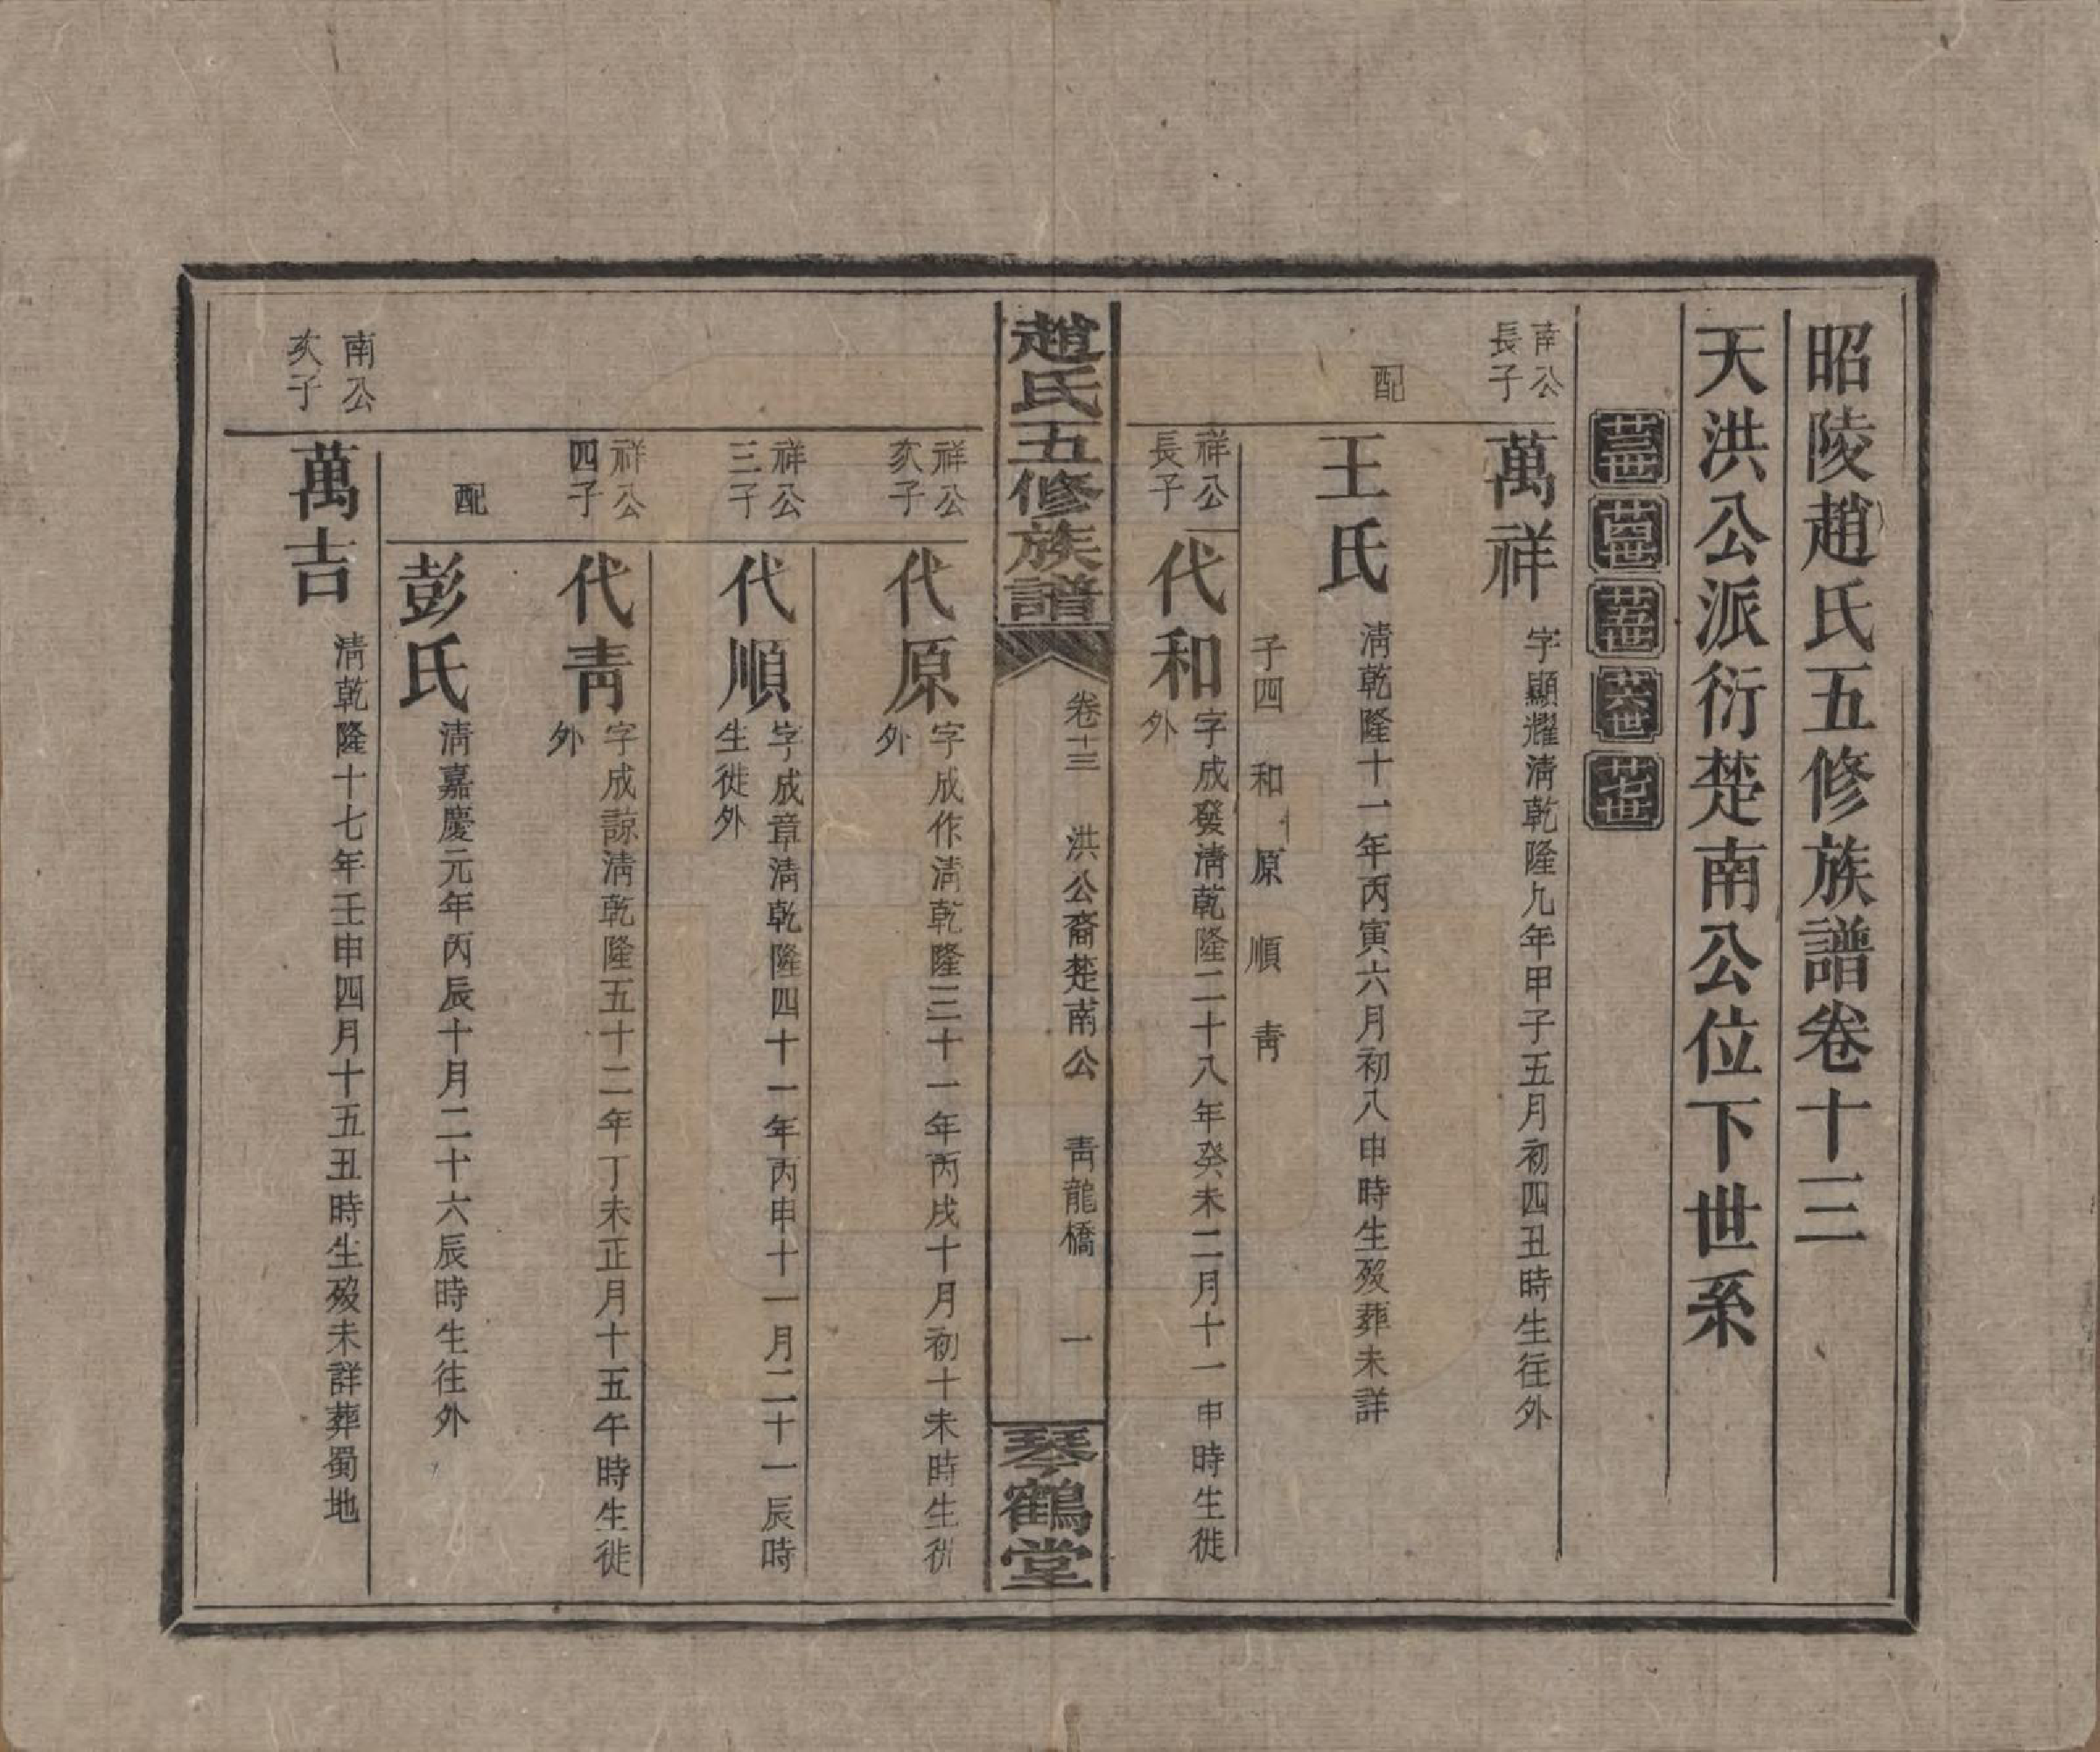 昭陵趙氏五修族譜卷十三
天洪公派衍楚南公位下世系
廿三世 廿四世 廿五世 廿六世 廿七世
南公長子
萬祥
字顯耀清乾隆九年甲子五月初四丑時生往外
配
王氏
清乾隆十一年丙寅六月初八申時生歿葬未詳
子四 和 原 順 靑
祥公長子
代和
字成發清乾隆二十八年癸未二月十一申時生徙
外
趙氏五修族譜
卷十三 洪公裔楚南公 靑龍橋 一
琴鶴堂
祥公次子
代原
字成作清乾隆三十一年丙戌十月初十未時生徙
外
祥公三子
代順
字成章清乾隆四十一年丙申十一月二十一辰時
生徙外
祥公四子
代靑
字成諒清乾隆五十二年丁未正月十五午時生徙
外
配
彭氏
清嘉慶元年丙辰十月二十六辰時生往外
南公次子
萬吉
清乾隆十七年壬申四月十五丑時生歿未詳葬蜀地